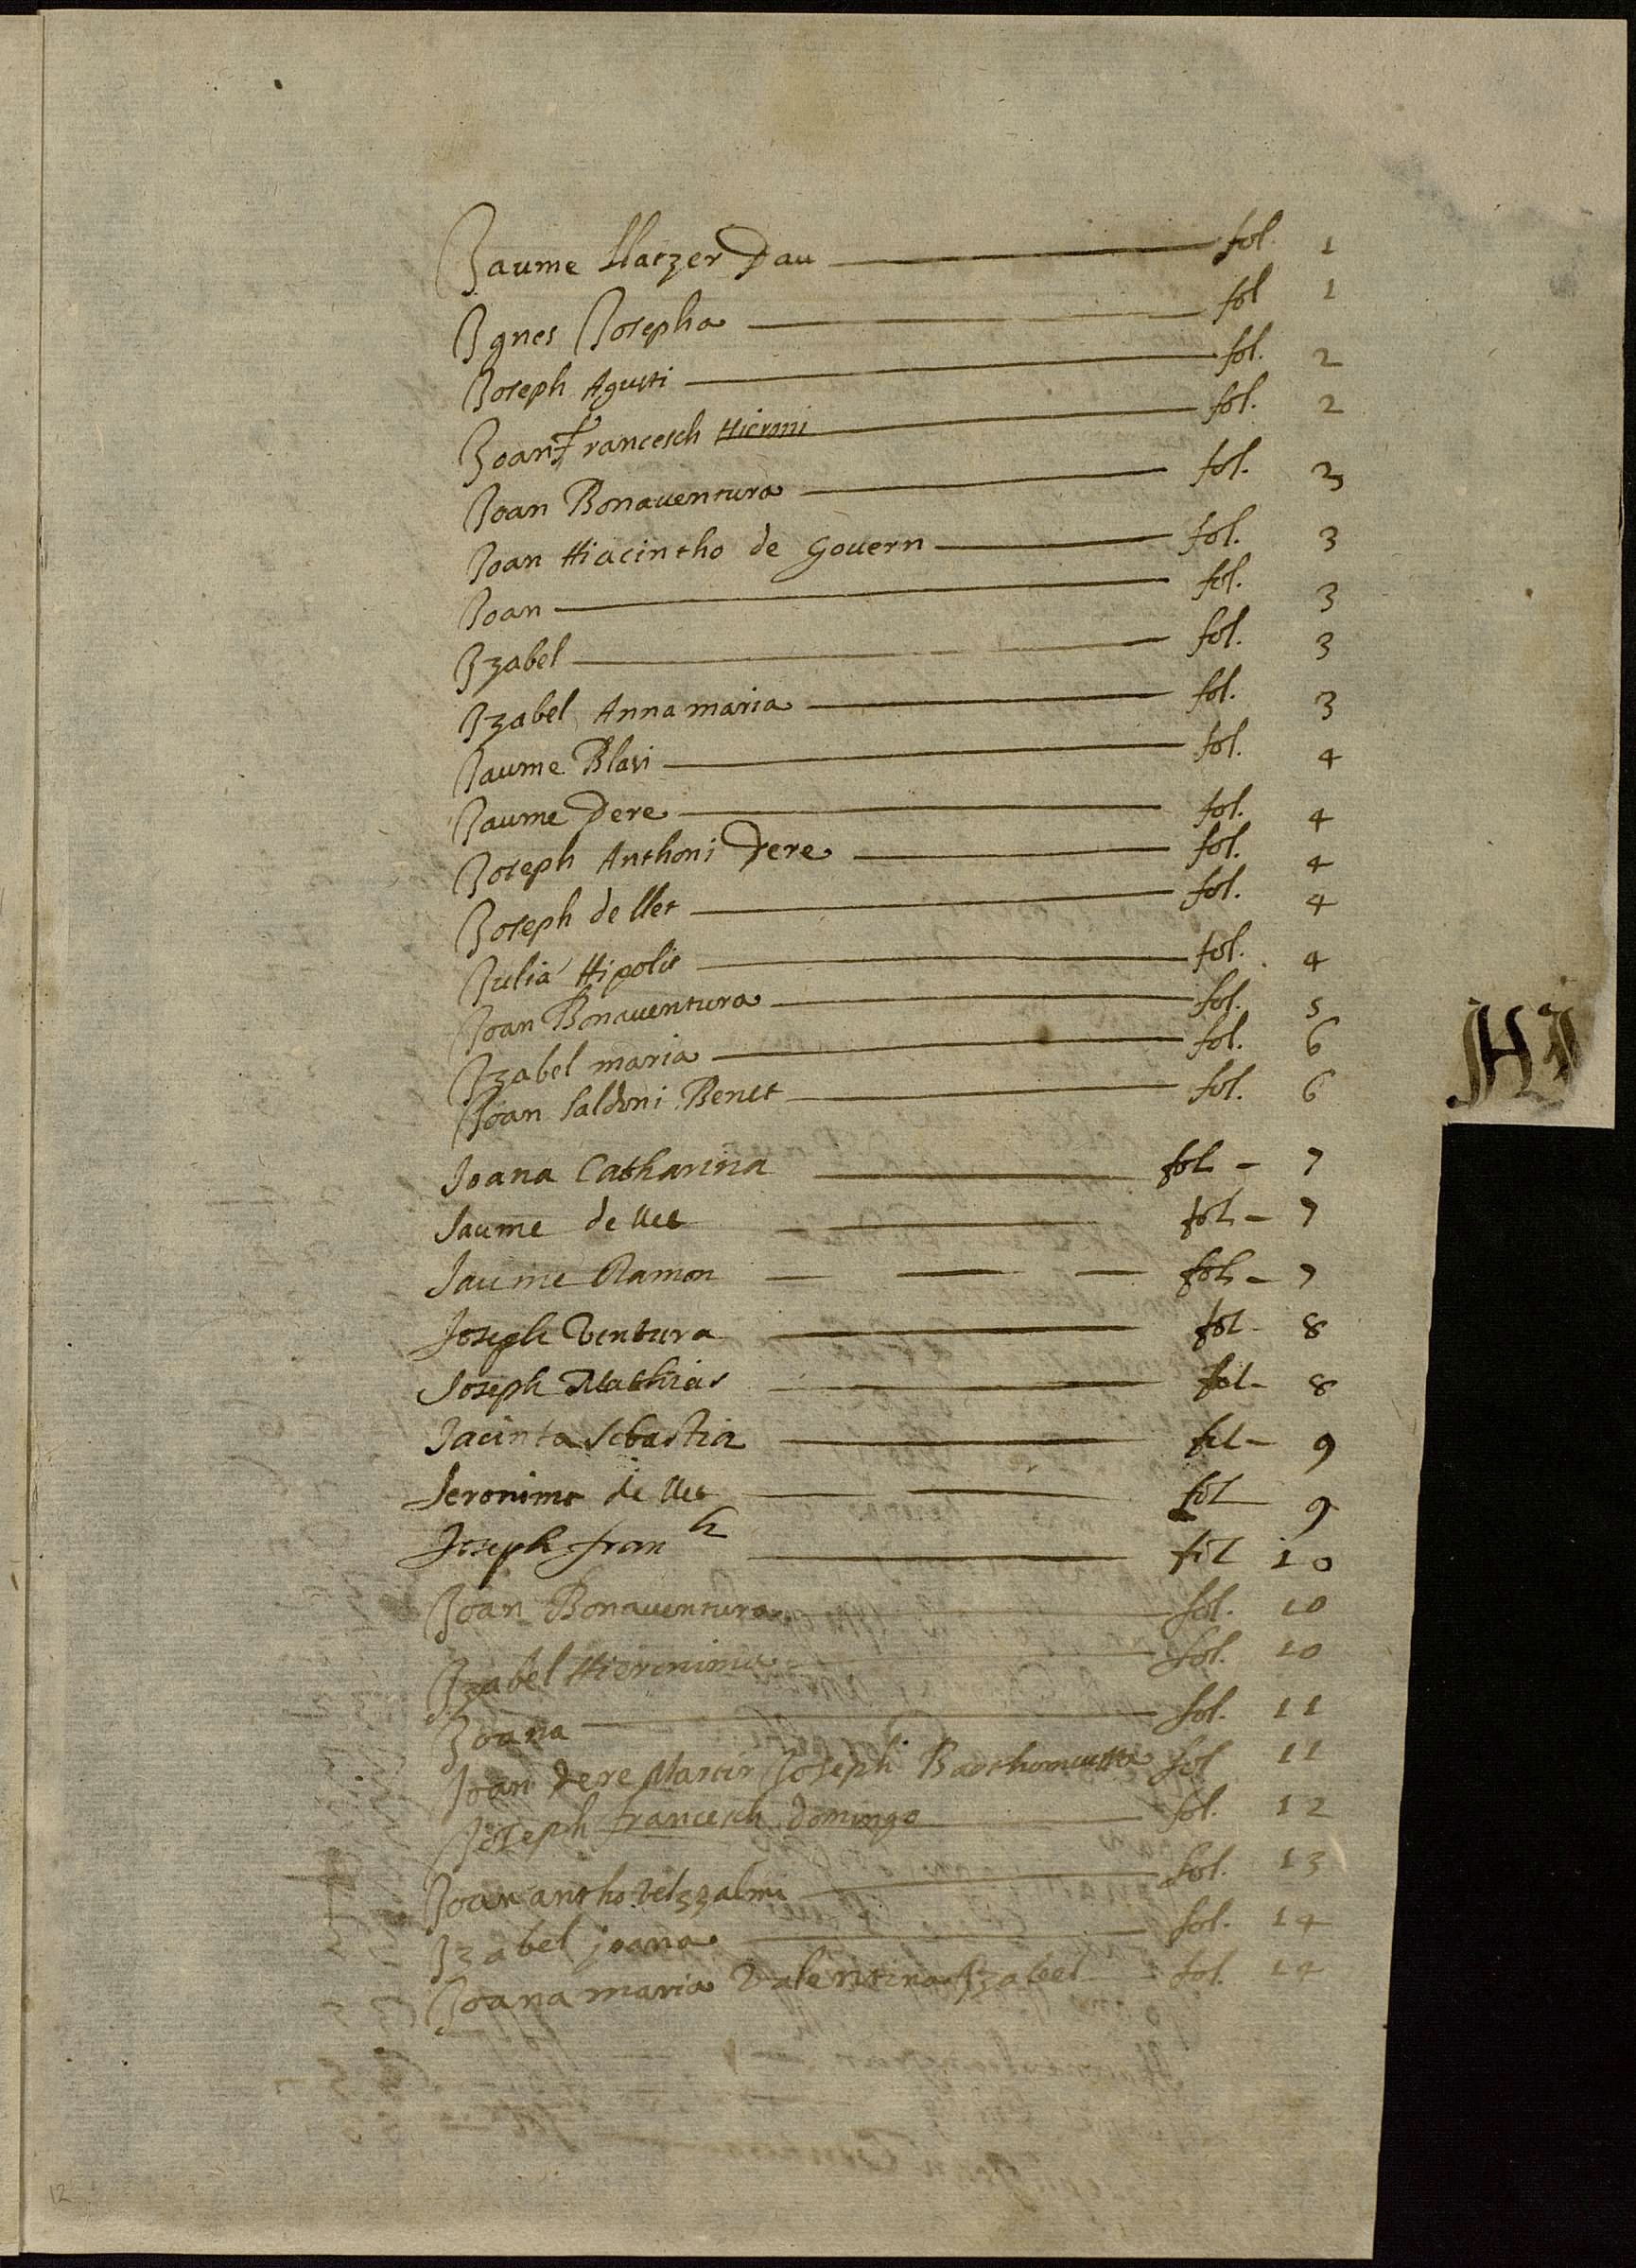 Jaume Llatzer Pau fol. 1
Ignes Josepha fol 1
Joseph Agusti fol. 2
Joan Francesch Hieroni fol. 2
Joan Bonauentura fol. 3
Joan Hiacintho de Gouern fol. 3
Joan fol. 3
Izabel fol. 3
Izabel Annamaria fol. 3
Jaume Blasi fol. 4
Jaume Pere fol. 4
Joseph Anthoni Pere fol. 4
Joseph de llet fol. 4
Julia Hipolit fol. 4
Joan Bonauentura fol. 5
Izabel maria fol. 6
Joan Saldoni Benet fol. 6
Joana Catharina fol - 7
Jaume de llet fol - 7
Jaume Ramon fol - 7
Joseph Ventura fol - 8
Joseph Mathias fol - 8
Jacinto Sebastia fol - 9
Jeronimo de llet fol 9
Joseph fran.h fol 10
Joan Bonauentura fol. 10
Izabel Hieronima fol. 10
Joana fol. 11
Joan Pere Martir Joseph fol 11
Joseph francesch domingo fol. 12
Joan antho fol. 13
Izabel joana fol. 14
Joana maria Valentina Izabel fol. 14
HI
12